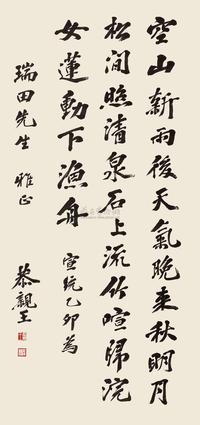 空山新雨後天氣晚来秋明月
松間照清泉石上流竹喧歸浣
女蓮動下漁舟 宣統乙卯為
瑞田先生 雅正
恭親王